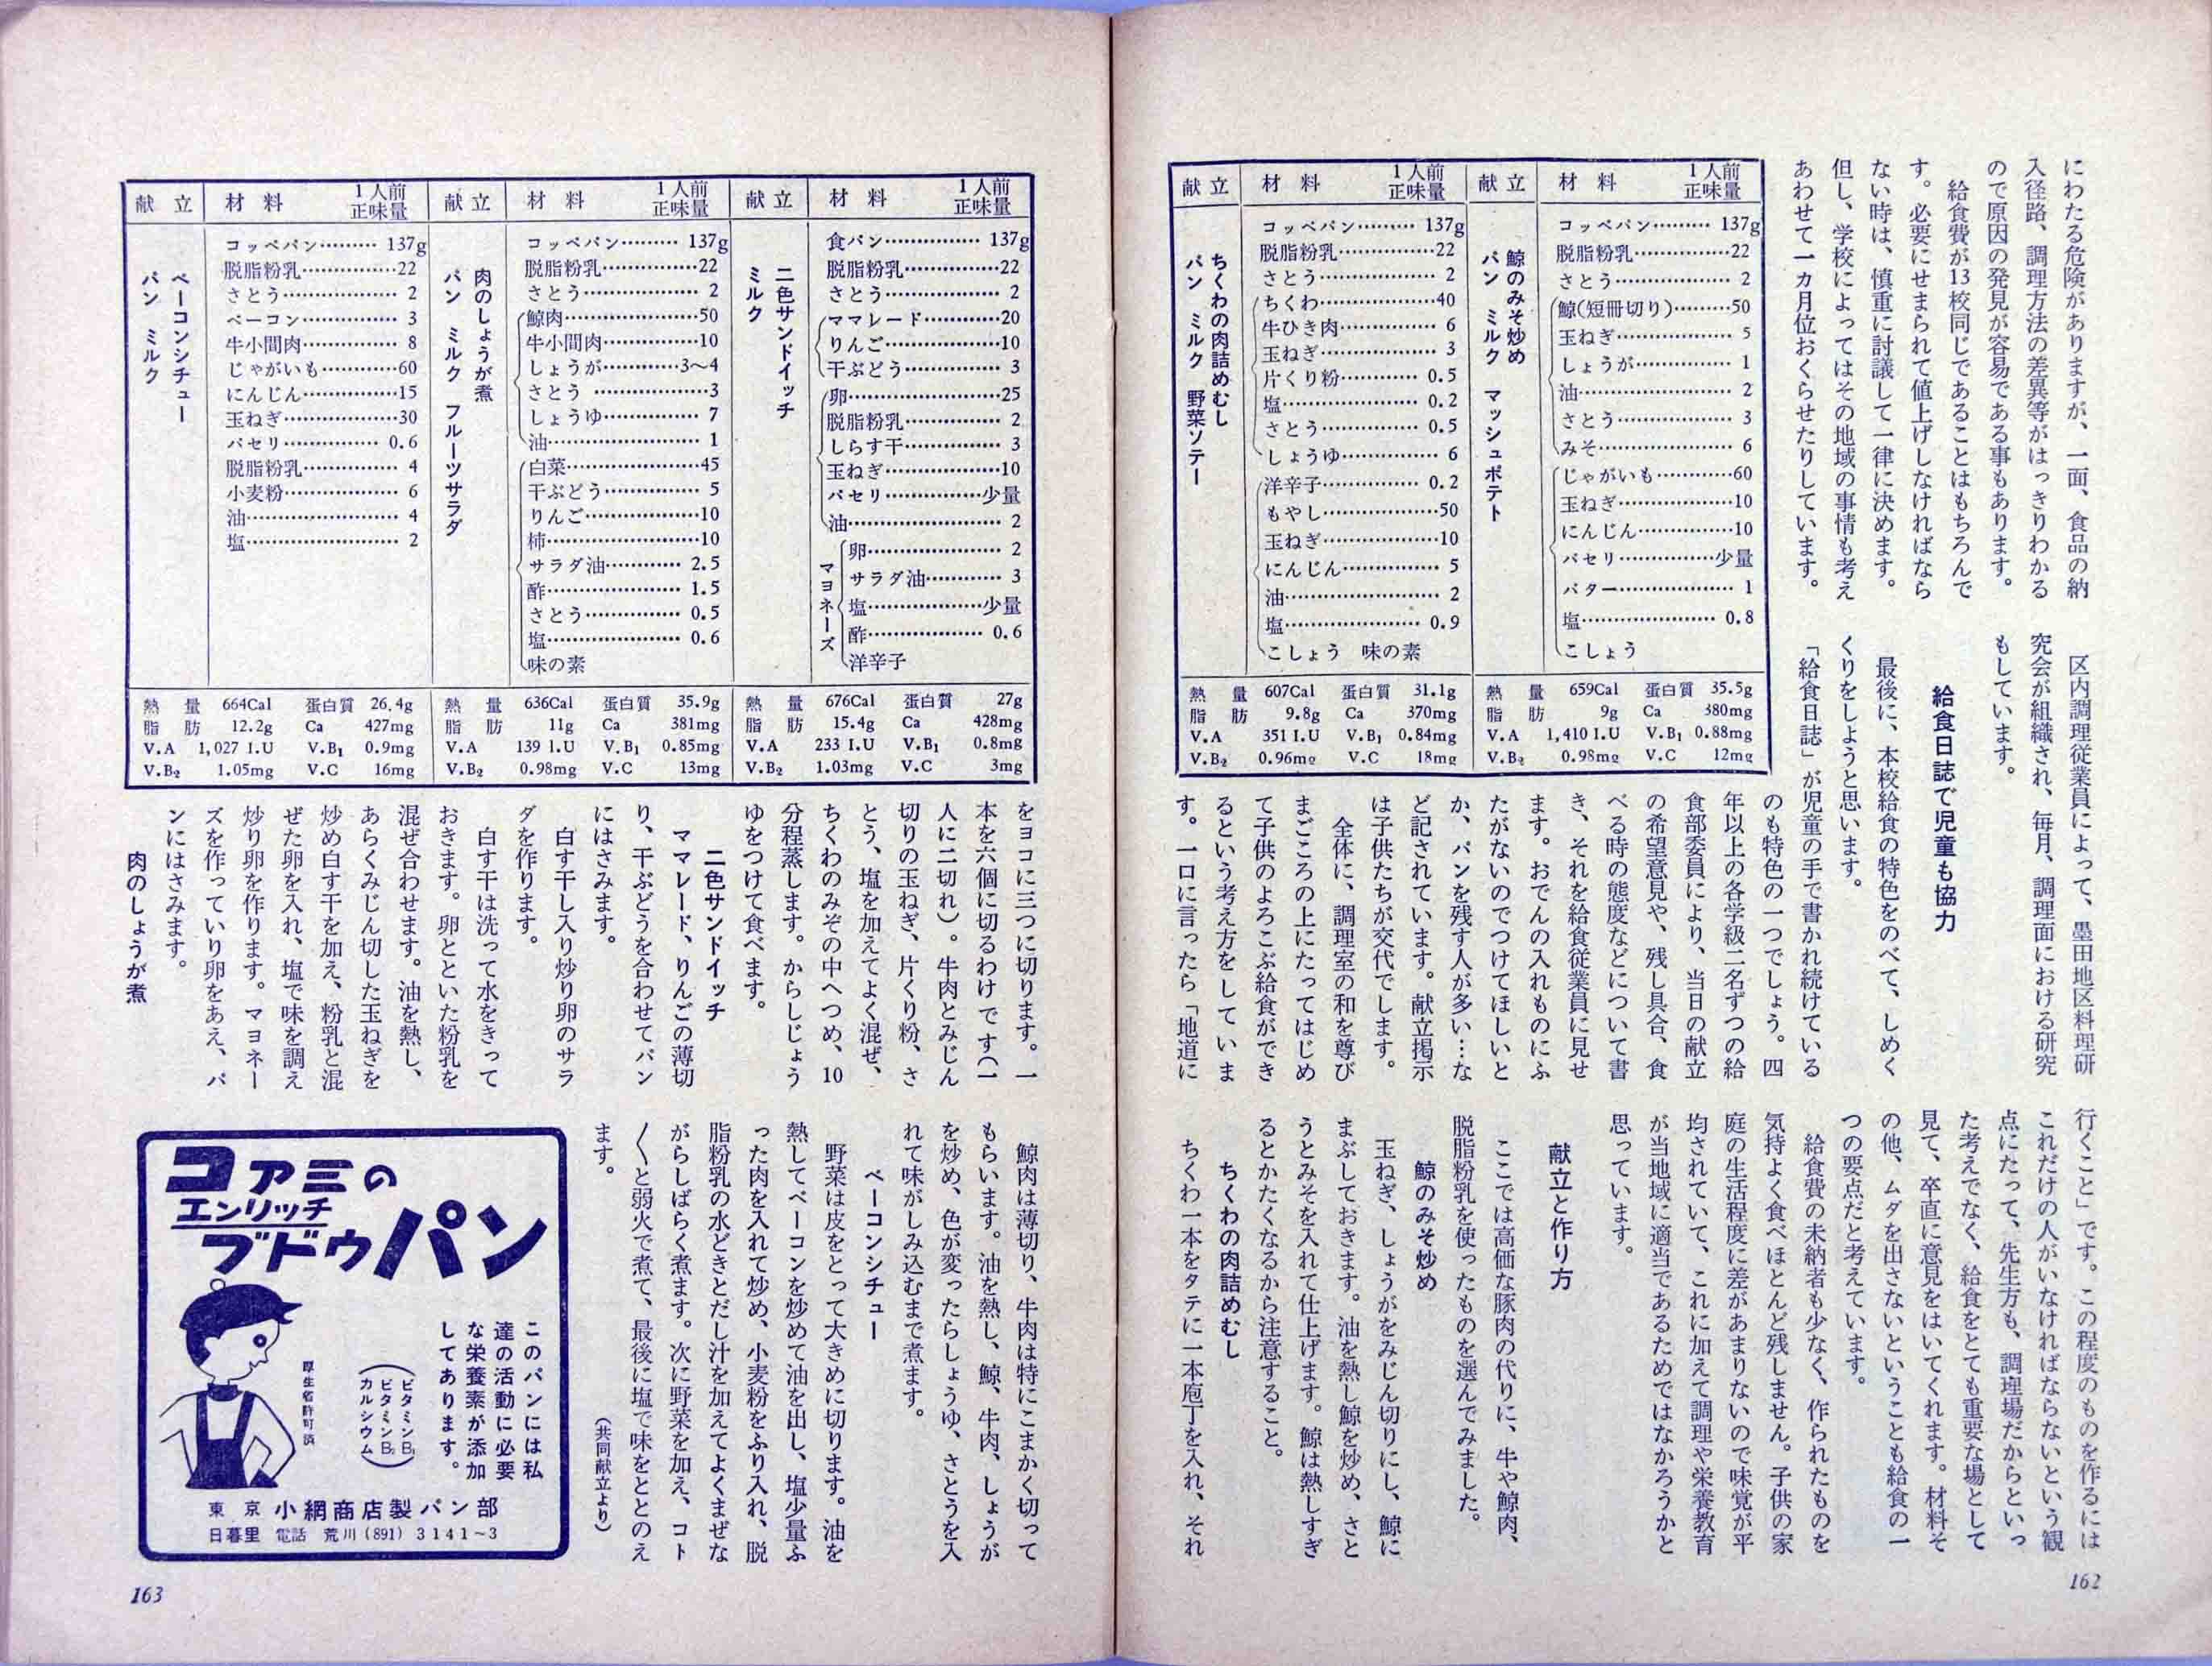 にわたる危険がありますが、一面、食品の納
入径路、調理方法の差異等がはっきりわかる
ので原因の発見が容易である事もあります。
給食費が13校同じであることはもちろんで
す。必要にせまられて値上げしなければなら
ない時は、慎重に討議して一律に決めます。
但し、学校によってはその地域の事情も考え
あわせて一カ月位おくらせたりしています。
区内調理従業員によって、墨田地区料理研
究会が組織され、毎月、調理面における研究
もしています。
給食日誌で児童も協力
最後に、本校給食の特色をのべて、しめく
くりをしようと思います。
「給食日誌」が児童の手で書かれ続けている
のも特色の一つでしょう。四
年以上の各学級二名ずつの給
食部委員により、当日の献立
の希望意見や、残し具合、食
べる時の態度などについて書
き、それを給食従業員に見せ
ます。おでんの入れものにふ
たがないのでつけてほしいと
か、パンを残す人が多い…な
ど記されています。献立掲示
は子供たちが交代でします。
全体に、調理室の和を尊び
まごころの上にたってはじめ
て子供のよろこぶ給食ができ
るという考え方をしていま
す。一口に言ったら「地道に
行くこと」です。この程度のものを作るには
これだけの人がいなければならないという観
点にたって、先生方も、調理場だからといっ
た考えでなく、給食をとても重要な場として
見て、卒直に意見をはいてくれます。材料そ
の他、ムダを出さないということも給食の一
つの要点だと考えています。
給食費の未納者も少なく、作られたものを
気持よく食べほとんど残しません。子供の家
庭の生活程度に差があまりないので味覚が平
均されていて、これに加えて調理や栄養教育
が当地域に適当であるためではなかろうかと
思っています。
献立と作り方
ここでは高価な豚肉の代りに、牛や鯨肉、
脱脂粉乳を使ったものを選んでみました。
鯨のみそ炒め
玉ねぎ、しょうがをみじん切りにし、鯨に
まぶしておきます。油を熱し鯨を炒め、さと
うとみそを入れて仕上げます。鯨は熱しすぎ
るとかたくなるから注意すること。
ちくわの肉詰めむし
ちくわ一本をタテに一本庖丁を入れ、それ
献立 材料 1人前正味量
鯨のみそ炒め
パン ミルク マッシュポテト
コッペパン……… 137g
脱脂粉乳……………22
さとう……………… 2
鯨(短冊切り)………50
玉ねぎ……………… 5
しょうが…………… 1
油…………………… 2
さとう……………… 3
みそ………………… 6
じゃがいも…………60
玉ねぎ………………10
にんじん……………10
パセリ……………少量
バター……………… 1
塩………………… 0.8
こしょう
熱量 659Cal 蛋白質 35.5g
脂肪 9g Ca 380mg
V.A 1,410 I.U V.B₁ 0.88mg
V.B₂ 0.98mg V.C 12mg
献立 材料 1人前正味量
ちくわの肉詰めむし
パン ミルク 野菜ソテー
コッペパン……… 137g
脱脂粉乳……………22
さとう……………… 2
ちくわ………………40
牛ひき肉…………… 6
玉ねぎ……………… 3
片くり粉………… 0.5
塩………………… 0.2
さとう…………… 0.5
しょうゆ…………… 6
洋辛子…………… 0.2
もやし………………50
玉ねぎ………………10
にんじん…………… 5
油…………………… 2
塩………………… 0.9
こしょう 味の素
熱量 607Cal 蛋白質 31.1g
脂肪 9.8g Ca 370mg
V.A 351 I.U V.B₁ 0.84mg
V.B₂ 0.96mg V.C 18mg
162
献立 材料 1人前正味量
二色サンドイッチ
ミルク
食パン…………… 137g
脱脂粉乳……………22
さとう……………… 2
ママレード…………20
りんご………………10
干ぶどう…………… 3
卵……………………25
脱脂粉乳…………… 2
しらす干…………… 3
玉ねぎ………………10
パセリ……………少量
油…………………… 2
マヨネーズ
卵…………………… 2
サラダ油…………… 3
塩…………………少量
酢………………… 0.6
洋辛子
熱量 676Cal 蛋白質 27g
脂肪 15.4g Ca 428mg
V.A 233 I.U V.B₁ 0.8mg
V.B₂ 1.03mg V.C 3mg
献立 材料 1人前正味量
肉のしょうが煮
パン ミルク フルーツサラダ
コッペパン……… 137g
脱脂粉乳……………22
さとう……………… 2
鯨肉…………………50
牛小間肉……………10
しょうが…………3〜4
さとう………………3
しょうゆ…………… 7
油…………………… 1
白菜…………………45
干ぶどう…………… 5
りんご………………10
柿……………………10
サラダ油………… 2.5
酢………………… 1.5
さとう…………… 0.5
塩………………… 0.6
味の素
熱量 636Cal 蛋白質 35.9g
脂肪 11g Ca 381mg
V.A 139 I.U V.B₁ 0.85mg
V.B₂ 0.98mg V.C 13mg
献立 材料 1人前正味量
ベーコンシチュー
パン ミルク
コッペパン……… 137g
脱脂粉乳……………22
さとう……………… 2
ベーコン…………… 3
牛小間肉…………… 8
じゃがいも…………60
にんじん……………15
玉ねぎ………………30
パセリ…………… 0.6
脱脂粉乳…………… 4
小麦粉……………… 6
油…………………… 4
塩…………………… 2
熱量 664Cal 蛋白質 26.4g
脂肪 12.2g Ca 427mg
V.A 1,027 I.U V.B₁ 0.9mg
V.B₂ 1.05mg V.C 16mg
をヨコに三つに切ります。一
本を六個に切るわけです(一
人に二切れ)。牛肉とみじん
切りの玉ねぎ、片くり粉、さ
とう、塩を加えてよく混ぜ、
ちくわのみぞの中へつめ、10
分程蒸します。からしじょう
ゆをつけて食べます。
二色サンドイッチ
ママレード、りんごの薄切
り、干ぶどうを合わせてパン
にはさみます。
白す干し入り炒り卵のサラ
ダを作ります。
白す干は洗って水をきって
おきます。卵とといた粉乳を
混ぜ合わせます。油を熱し、
あらくみじん切した玉ねぎを
炒め白す干を加え、粉乳と混
ぜた卵を入れ、塩で味を調え
炒り卵を作ります。マヨネー
ズを作っていり卵をあえ、パ
ンにはさみます。
肉のしょうが煮
鯨肉は薄切り、牛肉は特にこまかく切って
もらいます。油を熱し、鯨、牛肉、しょうが
を炒め、色が変ったらしょうゆ、さとうを入
れて味がしみ込むまで煮ます。
ベーコンシチュー
野菜は皮をとって大きめに切ります。油を
熱してベーコンを炒めて油を出し、塩少量ふ
った肉を入れて炒め、小麦粉をふり入れ、脱
脂粉乳の水どきとだし汁を加えてよくまぜな
がらしばらく煮ます。次に野菜を加え、コト
〱と弱火で煮て、最後に塩で味をととのえ
ます。
(共同献立より)
コアミの
エンリッチ
ブドウパン
このパンには私
達の活動に必要
な栄養素が添加
してあります。
(ビタミンB₁
ビタミンB₂
カルシウム)
厚生省許可済
東京 小網商店製パン部
日暮里 電話 荒川(891)3141〜3
163